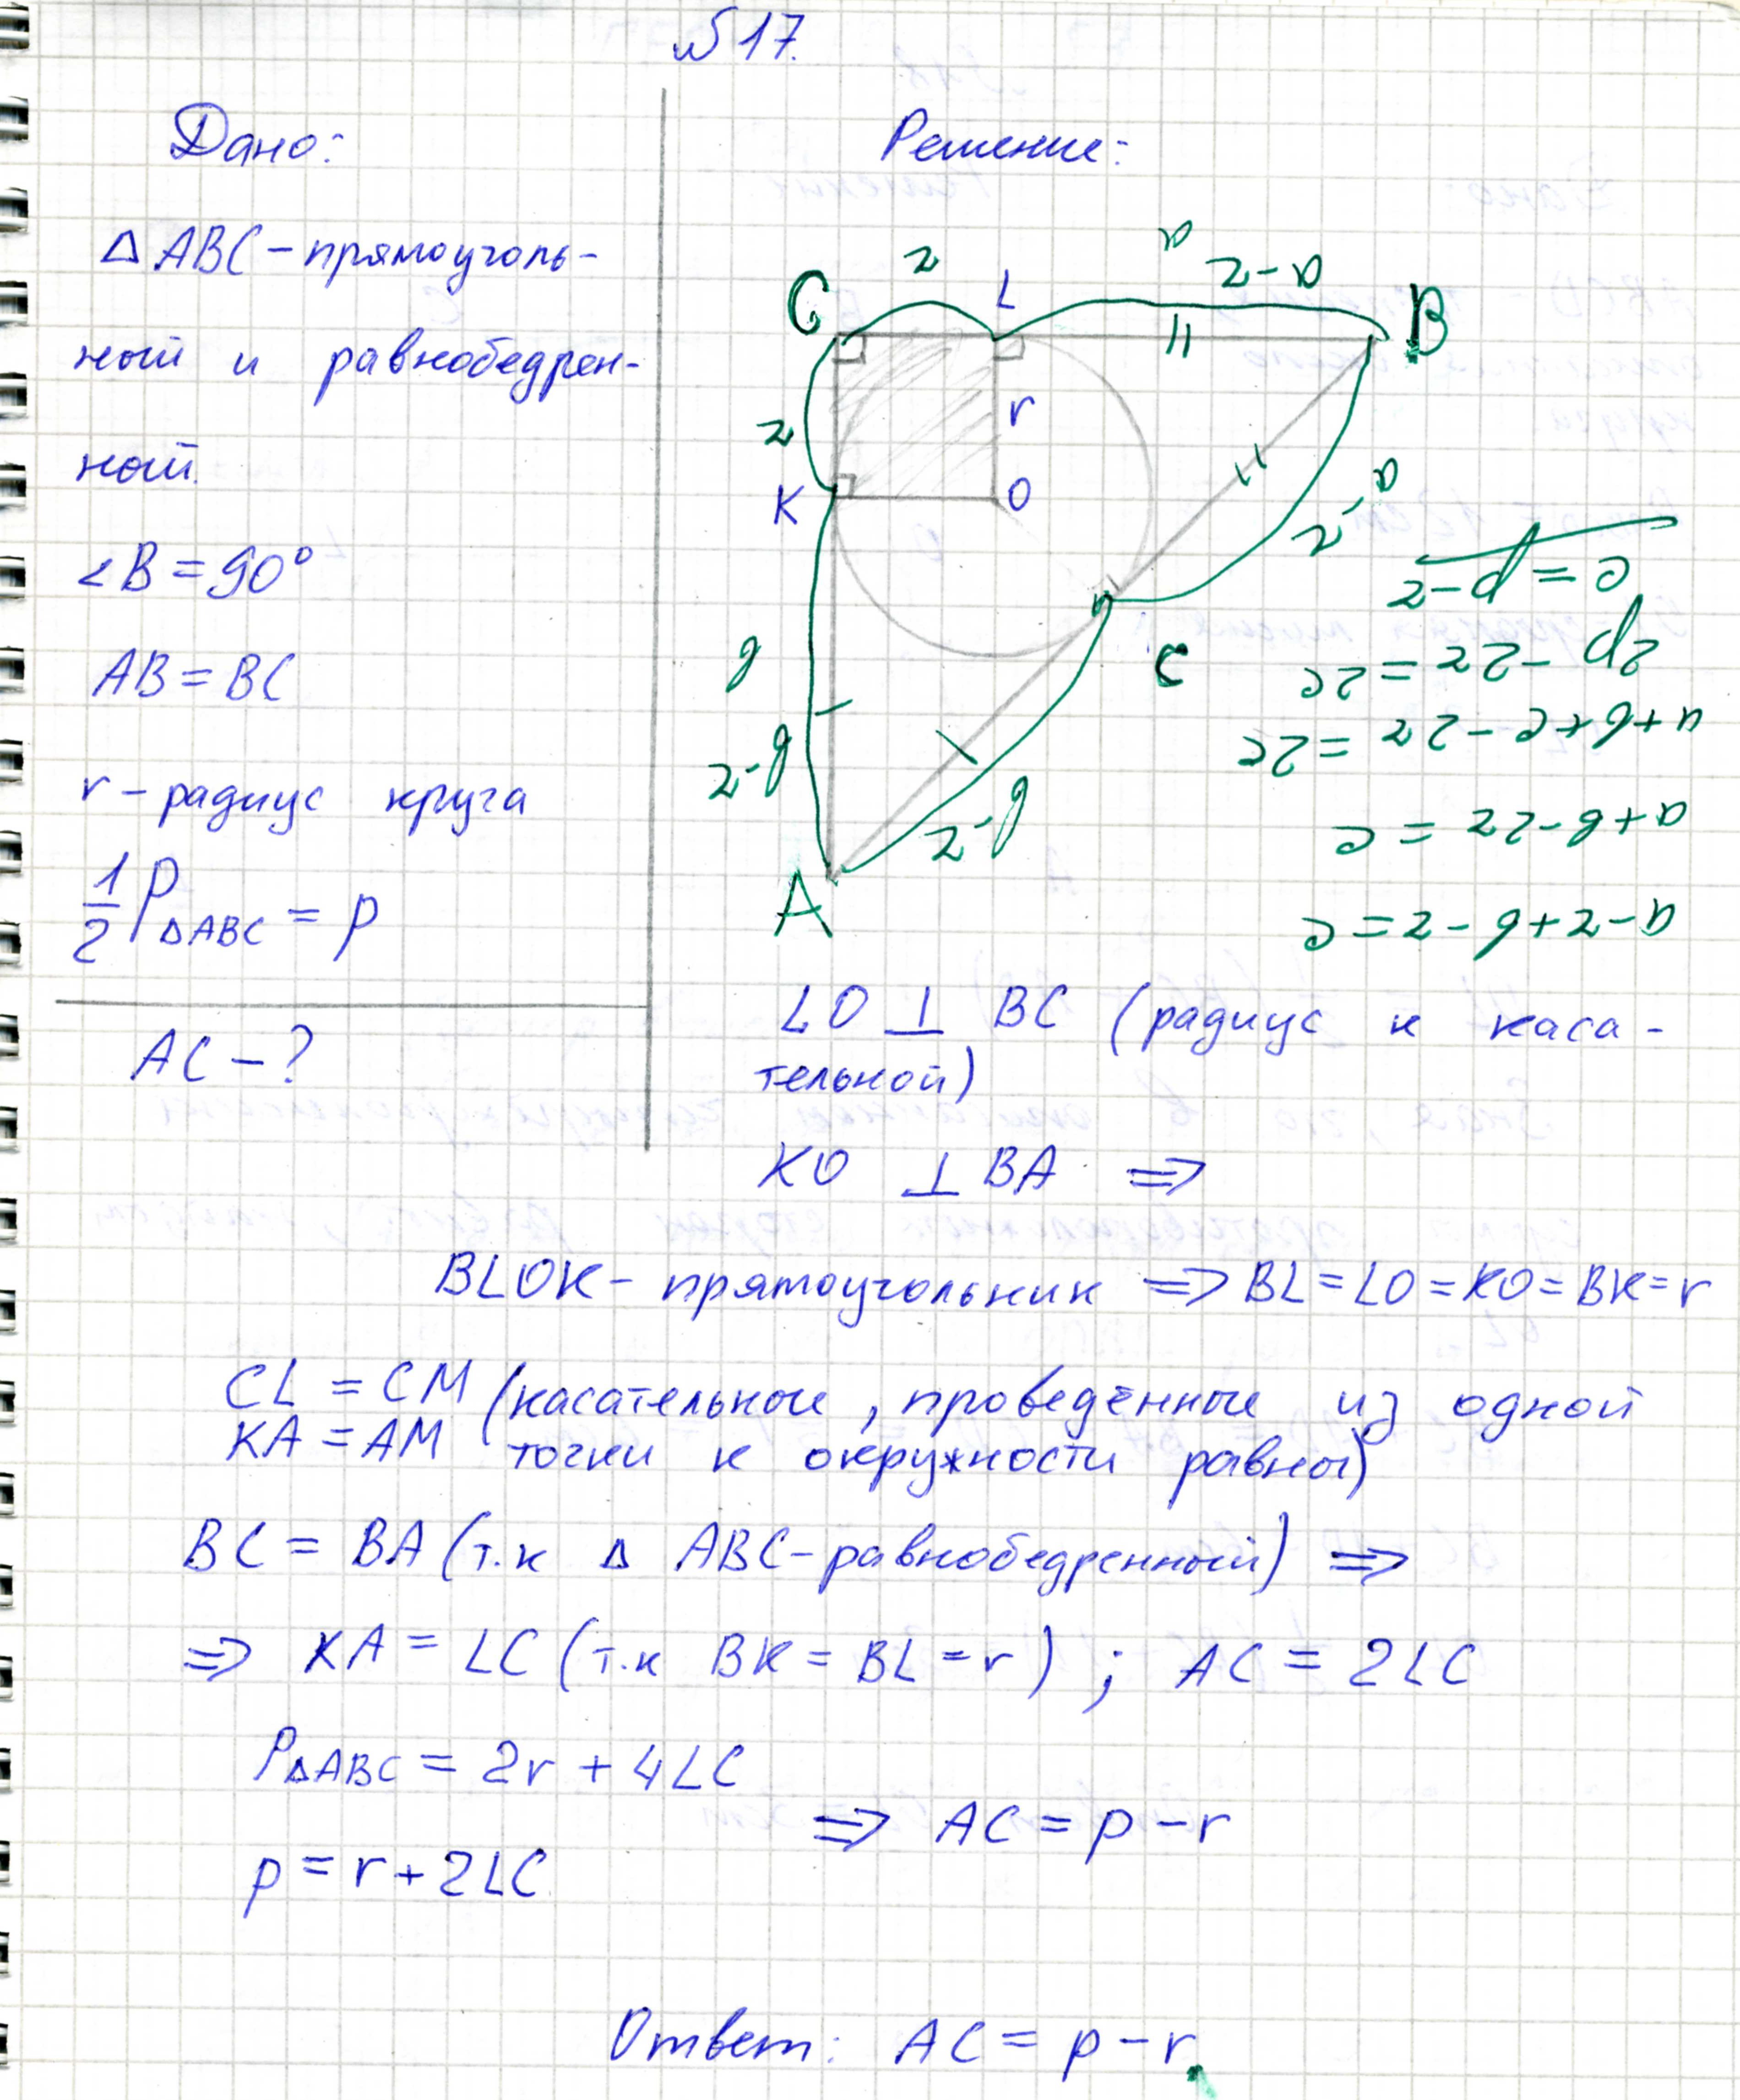 №17.
Дано:
△ABC - прямоуголь-
ный и равнобедрен-
ный.
∠B = 90°
AB = BC
r - радиус круга
1/2 P△ABC = p
AC - ?
Решение:
C
r
L
a
a-r
B
r
K
r
O
a-r
b
b-r
b-r
c
A
c = p-r
2p - 2r = 2c
a+b+c-2r = 2c
a+b-2r = c
a-r+b-r = c
LO ⊥ BC (радиус к каса-
тельной)
KO ⊥ BA ⇒
BLOK - прямоугольник ⇒ BL = LO = KO = BK = r
CL = CM (касательные, проведённые из одной
KA = AM точки к окружности равны)
BC = BA (т.к △ ABC - равнобедренный) ⇒
⇒ KA = LC (т.к BK = BL = r) ; AC = 2LC
P△ABC = 2r + 4LC
p = r + 2LC
⇒ AC = p - r
Ответ: AC = p - r